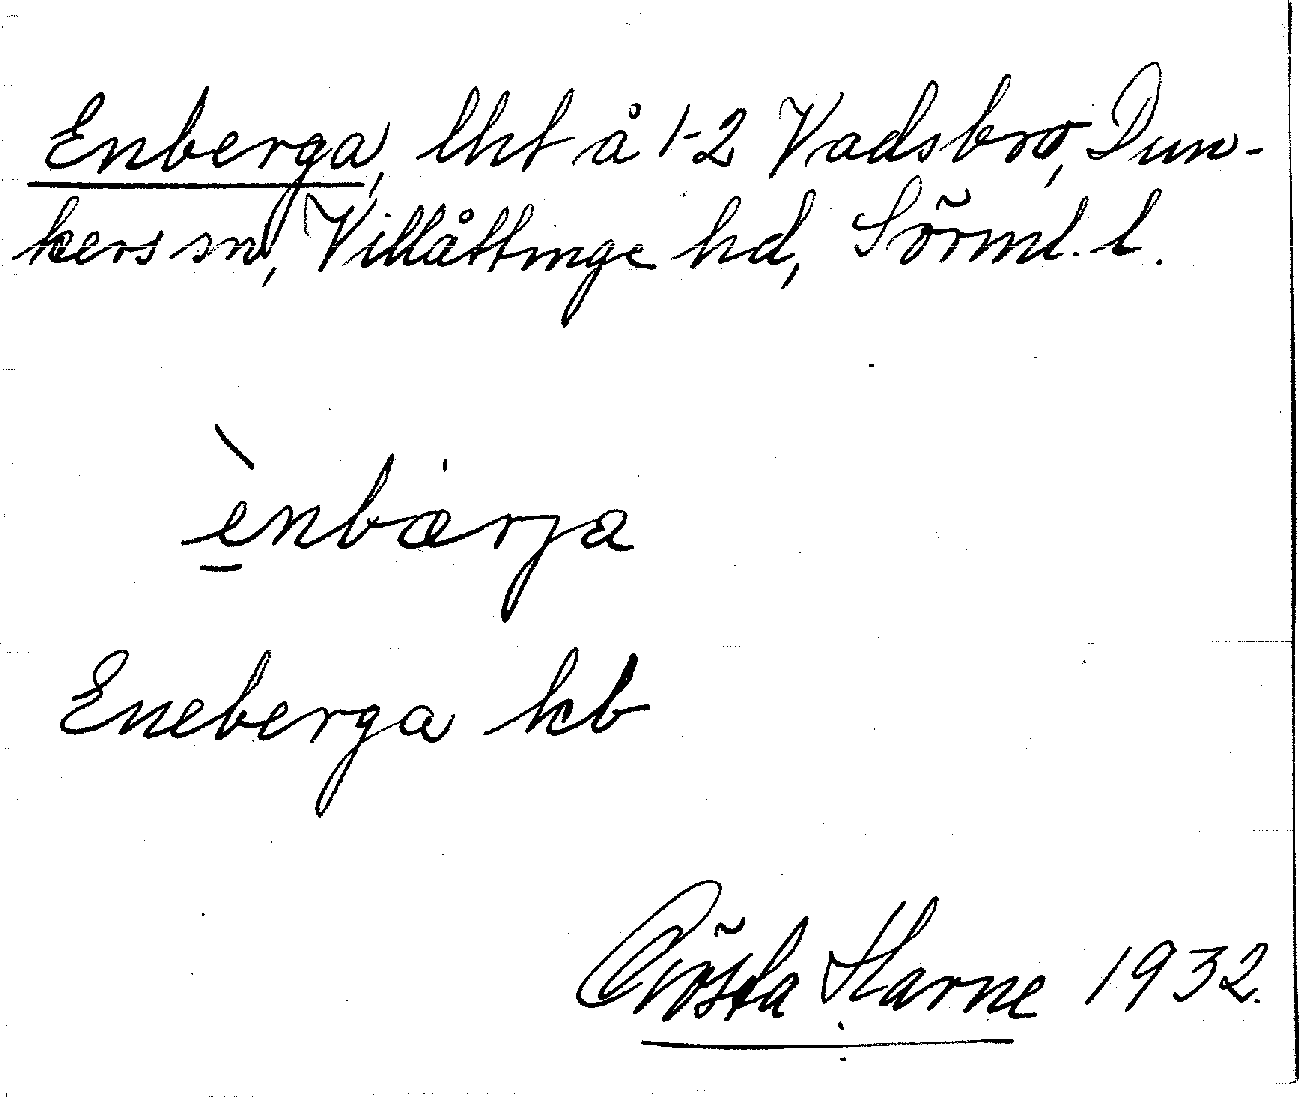 Enberga, lht å 1-2 Vadsbro, Dun-
kers sn, Villåttinge hd, Sörml. l.
ènbærja
Eneberga kb
Gösta Harne 1932.